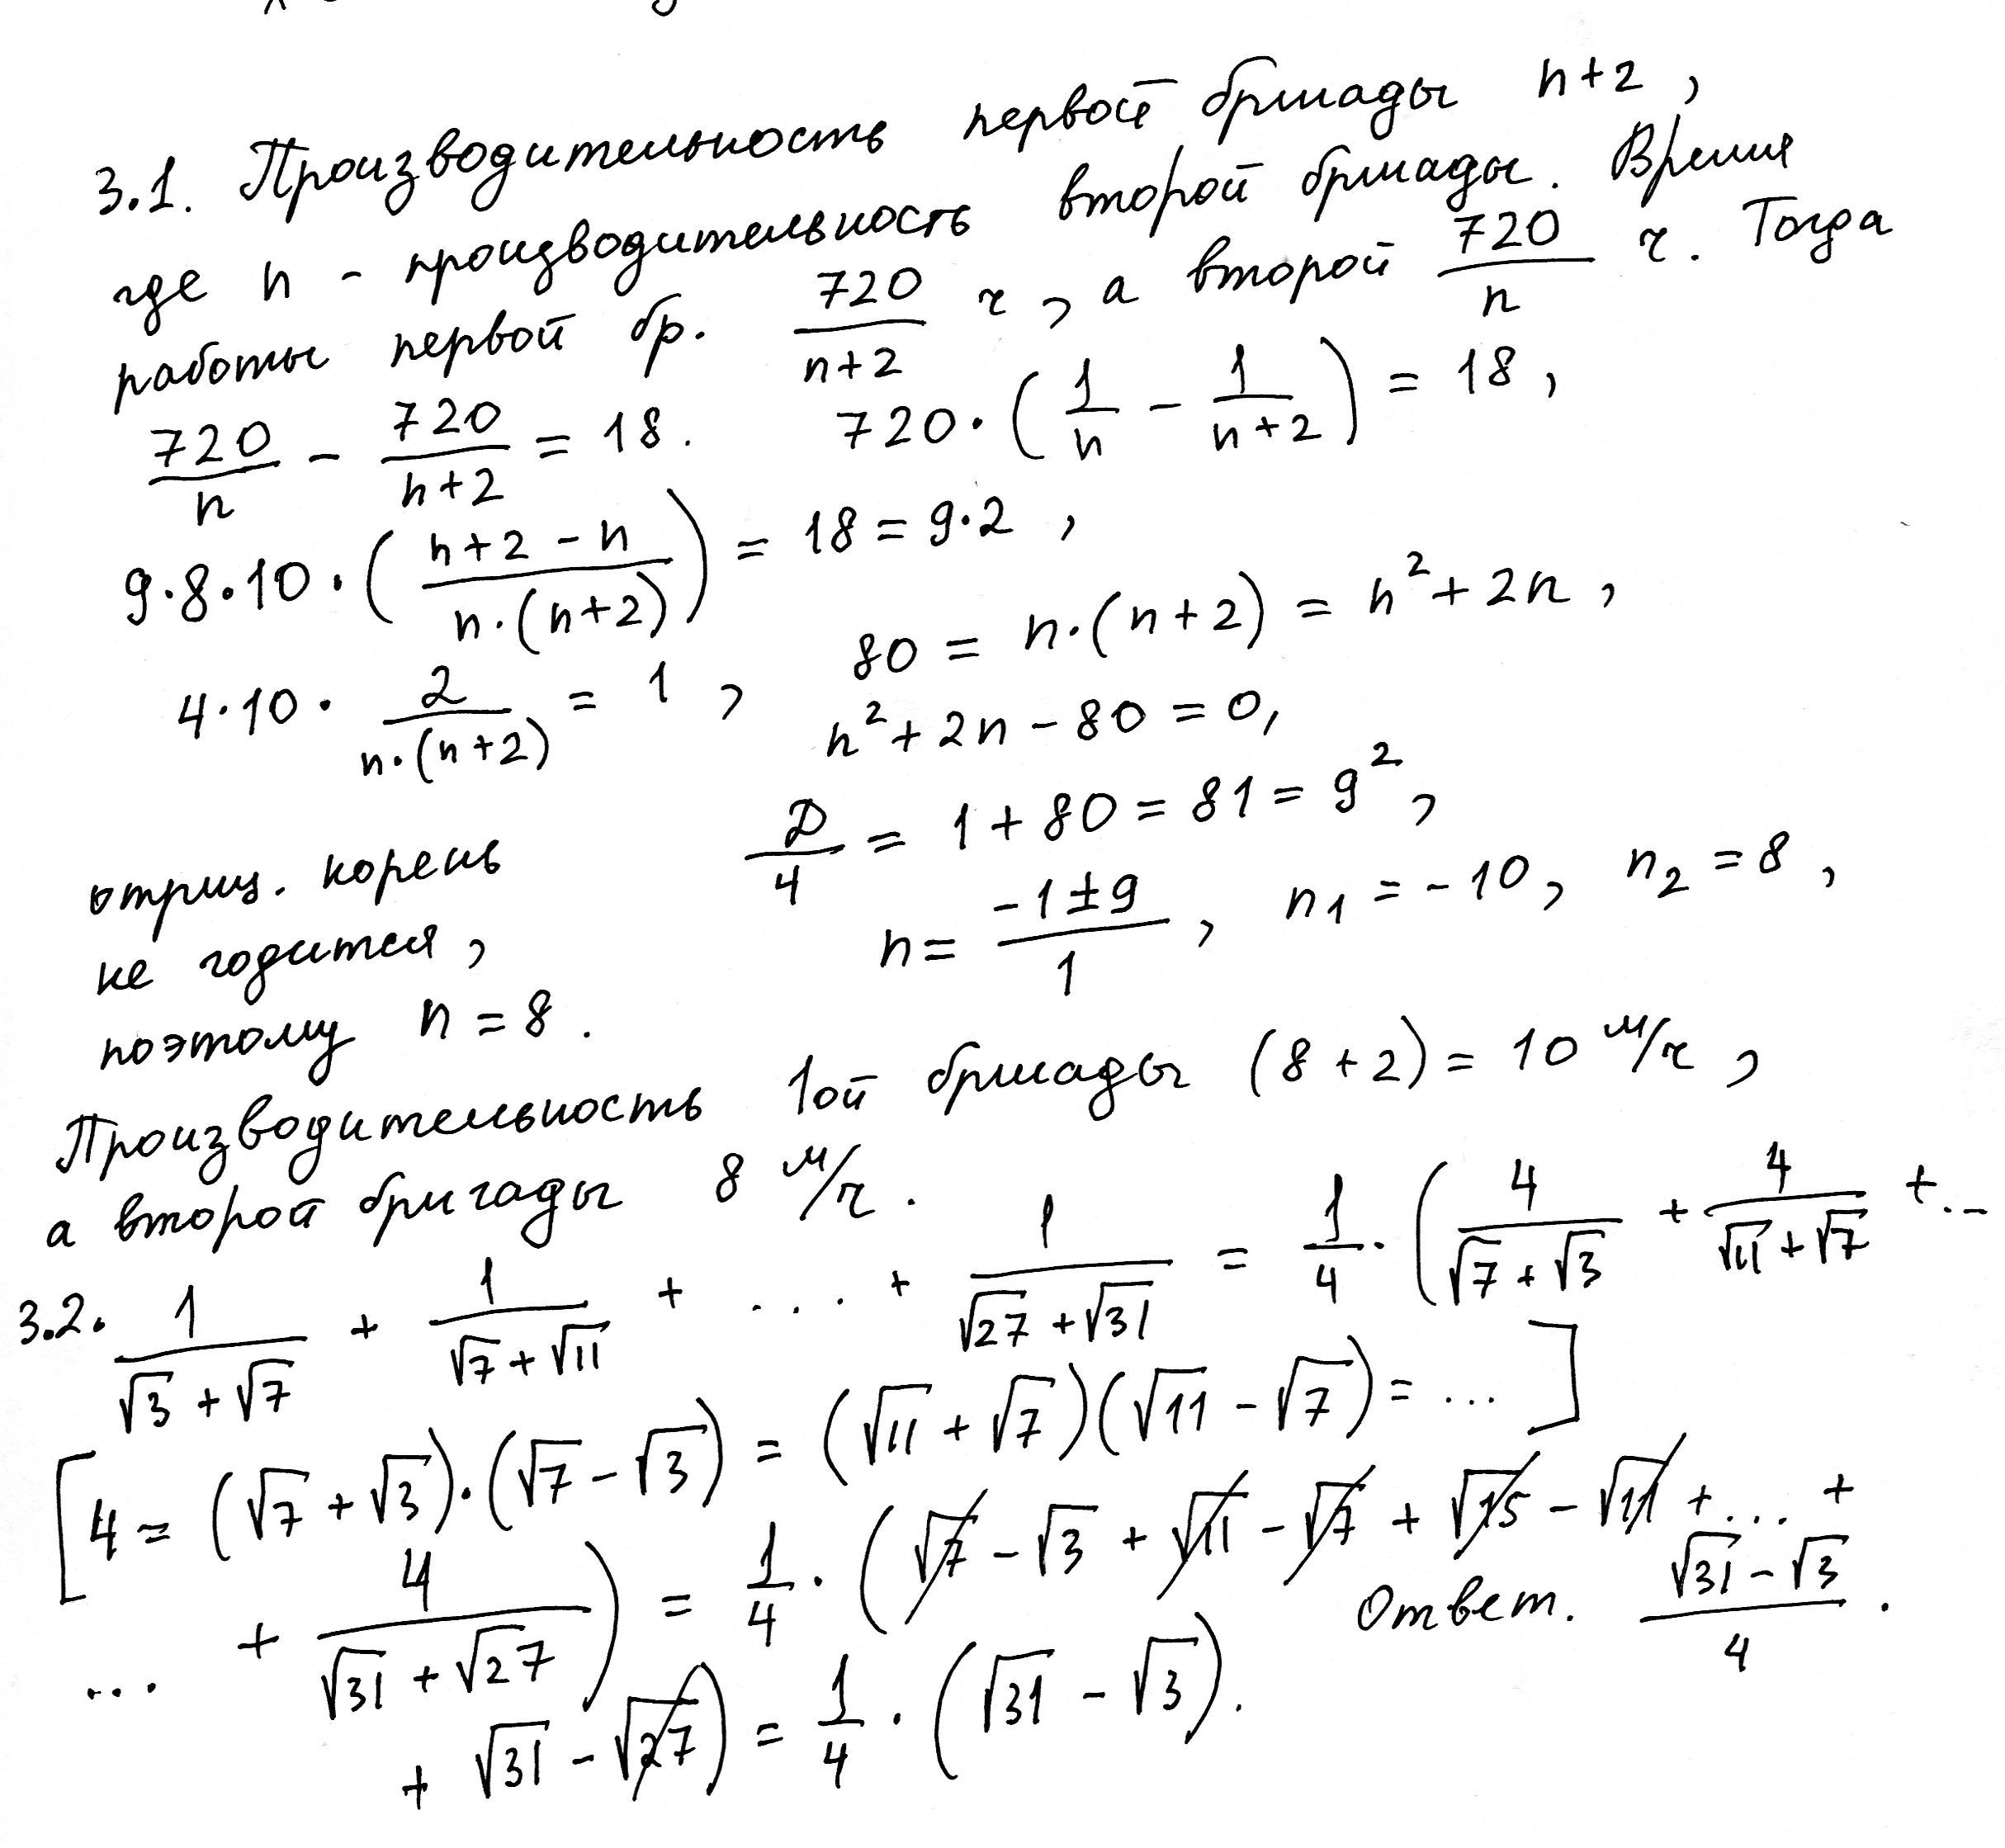 3.1. Производительность первой бригады n+2,
где n - производительность второй бригады. Время
работы первой бр. 720/(n+2) ч, а второй 720/n ч. Тогда
720/n - 720/(n+2) = 18. 720·(1/n - 1/(n+2)) = 18,
9·8·10·((n+2-n)/(n·(n+2))) = 18 = 9·2,
4·10·2/(n·(n+2)) = 1, 80 = n·(n+2) = n²+2n,
n²+2n-80=0,
D/4 = 1+80=81=9²,
отриц. корень
не годится,
поэтому n=8.
n = (-1±9)/1, n₁=-10, n₂=8,
Производительность 1ой бригады (8+2)=10 м/ч,
а второй бригады 8 м/ч.
3.2. 1/(√3+√7) + 1/(√7+√11) + ... + 1/(√27+√31) = 1/4·(4/(√7+√3) + 4/(√11+√7) +...
[4=(√7+√3)·(√7-√3)=(√11+√7)(√11-√7)=...]
... + 4/(√31+√27)) = 1/4·(√7-√3+√11-√7+√15-√11+...+
+√31-√27) = 1/4·(√31-√3).
Ответ. (√31-√3)/4.